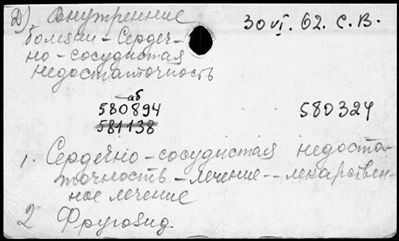 Д) Внутренние
болезни – Сердеч-
но-сосудистая
недостаточность
30 VI. 62. С.В.
аб
580894
581138
580324
1. Сердечно-сосудистая недоста-
точность – лечение -- лекарствен-
ное лечение
2 Фругозид.